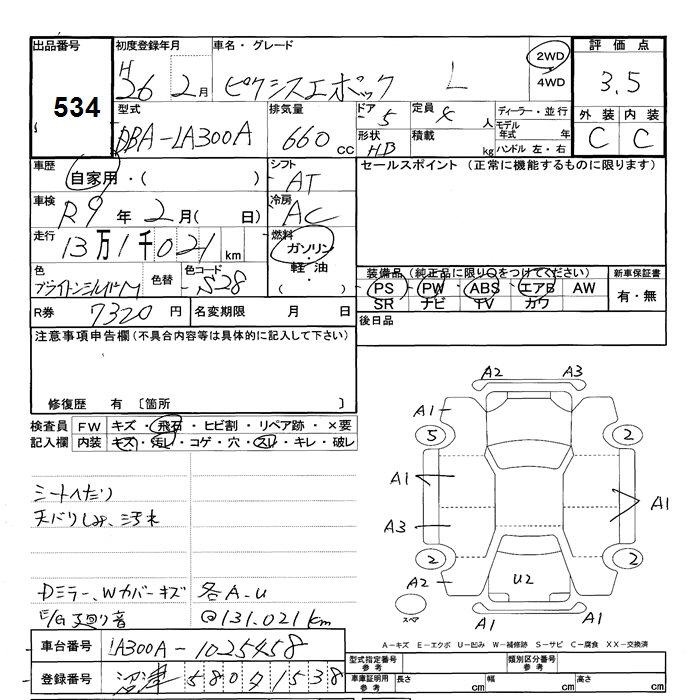 出品番号 初度登録年月 車名・グレード 評価点
534 H26 2月 ピクシスエポック L 2WD 4WD 3.5
型式 排気量 ドア 定員 ディーラー・並行 外装 内装
DBA-LA300A 660CC 5 4人 モデル年式 年 C C
形状 HB 積載 kg ハンドル 左・右
車歴 自家用・( ) シフト AT セールスポイント(正常に機能するものに限ります)
車検 R9年2月( 日) 冷房 AC
走行 13万1千021km 燃料 ガソリン・軽油 ( )
色 ブライトンシルバーM 色替 色コード S28
装備品(純正品に限り○をつけてください) 新車保証書
PS・PW・ABS・エアB・AW 有・無
SR ナビ TV カワ
R券 7320円 名変期限 月 日 後日品
注意事項申告欄(不具合内容等は具体的に記入して下さい)
修復歴 有 〔箇所 〕
検査員 FW キズ・飛石・ヒビ割・リペア跡・×要
記入欄 内装 キズ・汚レ・コゲ・穴・スレ・キレ・破レ
シートヘタリ
天バリしみ、汚れ
Dミラー、Wカバーキズ 各A-U
E/G廻り音 @131.021km
車台番号 LA300A-1025458
登録番号 沼津 580 わ 1538
A2 A3
A1
5 2
A1 A1
A3
2 2
A2 U2
スペア A1
A-キズ E-エクボ U-凹み W-補修跡 S-サビ C-腐食 XX-交換済
型式指定番号 参考 類別区分番号 参考
車庫証明用 参考 長さ cm 幅 cm 高さ cm